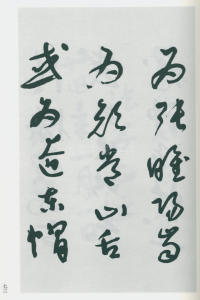 為張睢陽齒
為顏常山舌
或為遼東帽